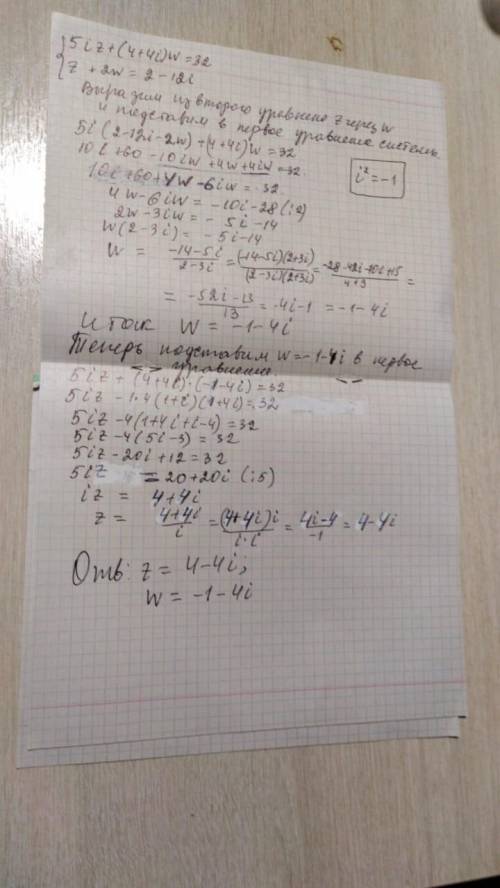 5iz+(4+4i)w=32
z+2w=2-12i
Выразим из второго уравнения z через w
и подставим в первое уравнение системы
5i(2-12i-2w)+(4+4i)w=32
10i+60-10iw+4w+4iw=32
i²=-1
10i+60+4w-6iw=32
4w-6iw=-10i-28(:2)
2w-3iw=-5i-14
w(2-3i)=-5i-14
w=\frac{-14-5i}{2-3i}=\frac{(-14-5i)(2+3i)}{(2-3i)(2+3i)}=\frac{-28-42i-10i+15}{4+9}=
=\frac{-52i-13}{13}=-4i-1=-1-4i
Итак w=-1-4i
Теперь подставим w=-1-4i в первое
уравнение
5iz+(4+4i)·(-1-4i)=32
5iz-1·4(1+i)(1+4i)=32
5iz-4(1+4i+i-4)=32
5iz-4(5i-3)=32
5iz-20i+12=32
5iz=20+20i(:5)
iz=4+4i
z=\frac{4+4i}{i}=\frac{(4+4i)i}{i·i}=\frac{4i-4}{-1}=4-4i
Отв: z=4-4i;
w=-1-4i